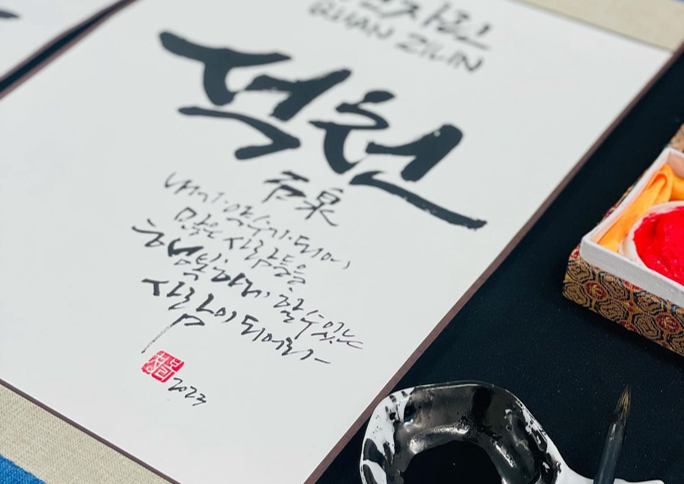 QUAN ZILIN
석천
石泉
내가 약수가 되어
많은 사람들을
행복하게 할 수 있는
사람이 되어라
2023